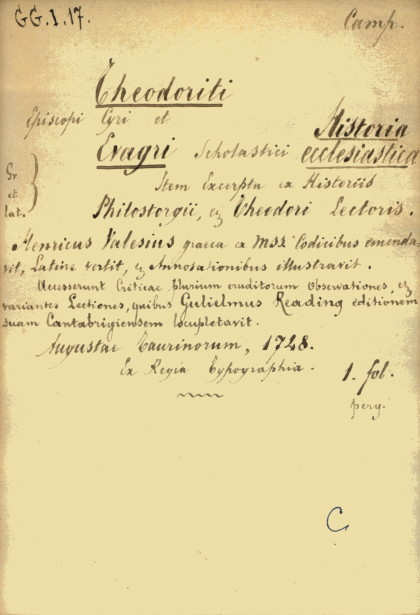 GG.I.17. Camp.
Theodoriti
Episcopi Cyri et Historia
Evagri Scholastici ecclesiastica
Gr et lat.
Item Excerpta ex Historiis
Philostorgii, & Theodori Lectoris.
Henricus Valesius graeca ex MSS. Codicibus emenda-
vit, Latine vertit, & Annotationibus illustravit.
Accesserunt Criticae plurium eruditorum Observationes, &
variantes Lectiones, quibus Gulielmus Reading editionem
suam Cantabrigiensem locupletavit.
Augustae Taurinorum, 1728.
Ex Regia Typographia. 1. fol.
perg.
C